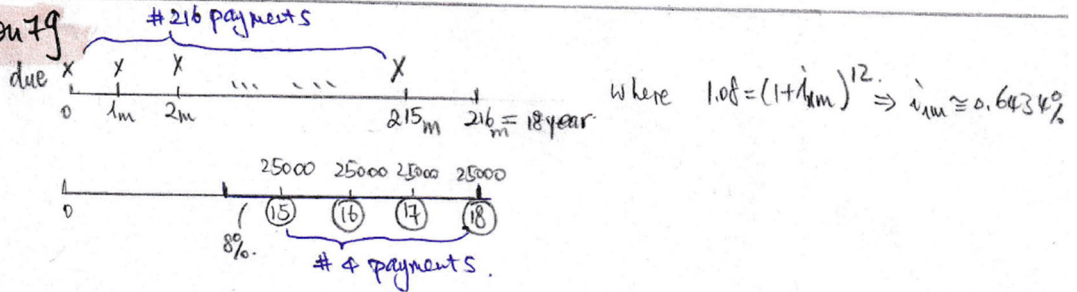 #216 payments
79
due X X X ... ... X
0 1m 2m 215m 216m = 18year
where 1.08=(1+i1m)^12 ⇒ i1m ≅ 0.6434%
25000 25000 25000 25000
0 15 16 17 18
8%.
#4 payments.